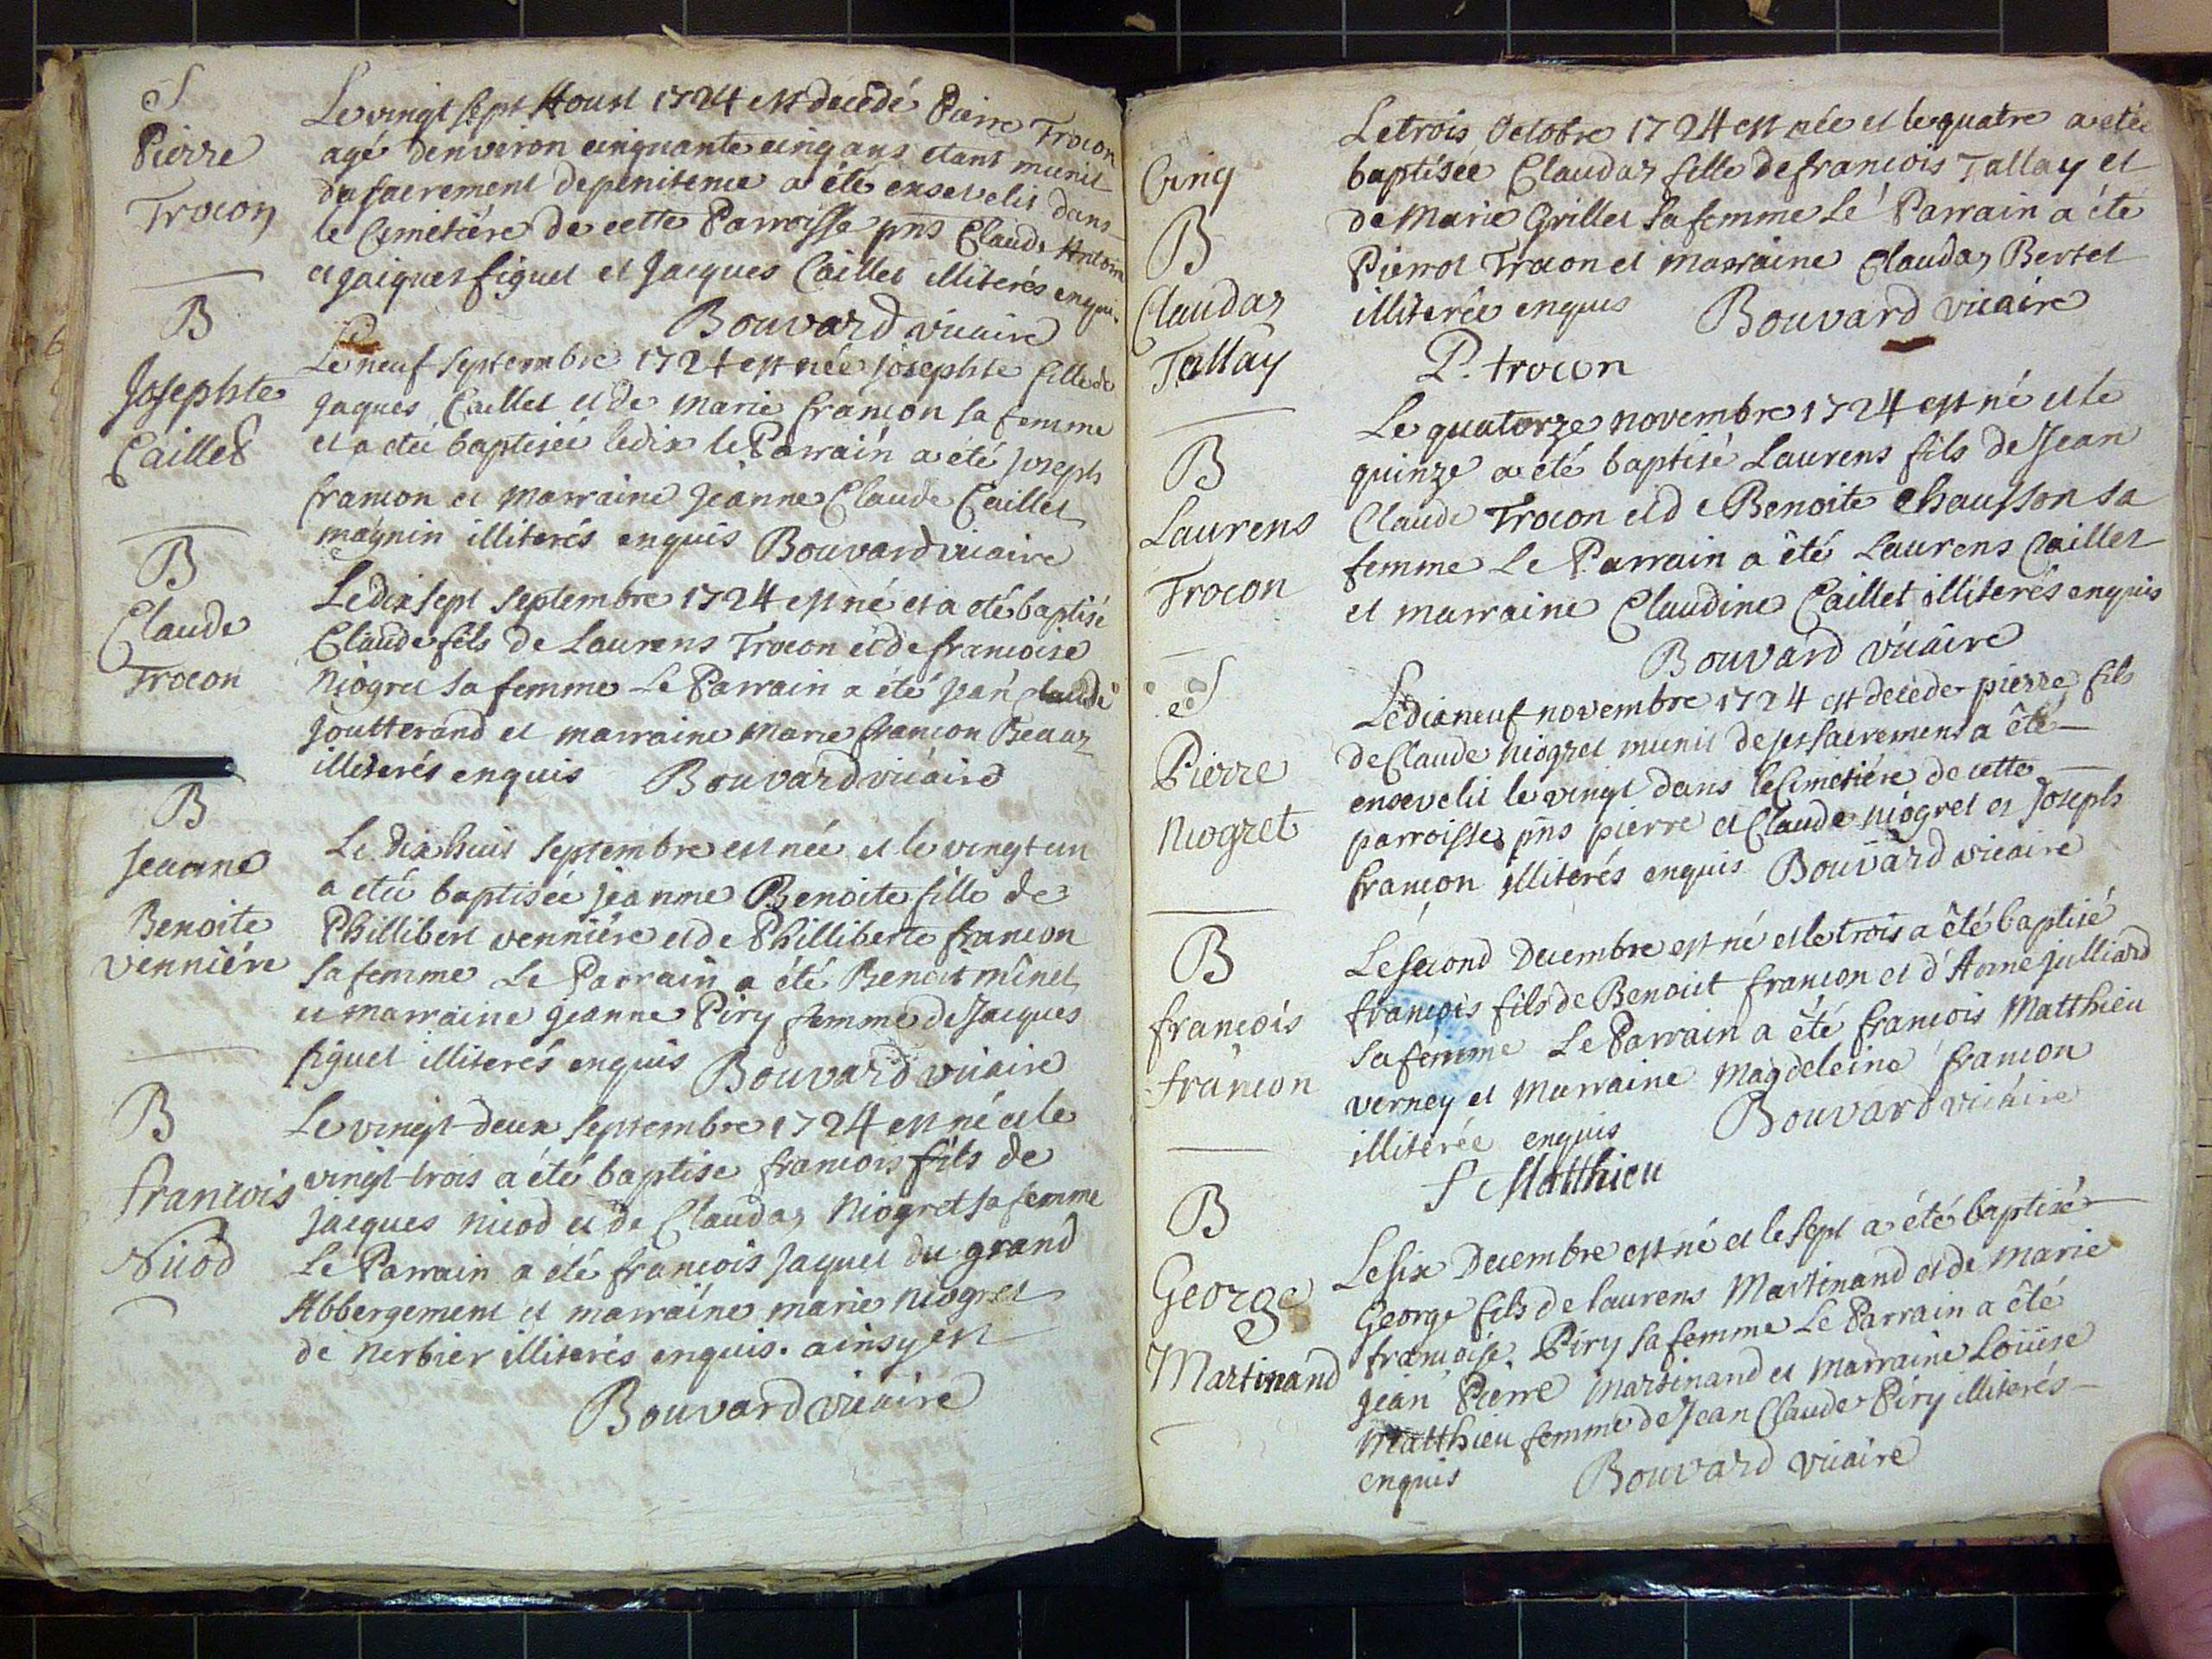 S
Pierre
Trocon
Le vingt sept Aoust 1724 est decedé Pierre Trocon
agé denviron cinquante cinq ans etant munit
du sacrement depenitence a été ensevelit dans
le Cimetiére de cette Parroisse pns Claude Antoine
et Jaiques figuet et Jacques Caillet illiterés enqui.
Bouvard vicaire
B
Josephte
Caillet
Le neuf septembre 1724 est née josephte fille de
jaques Caillet et de marie francon sa femme
et a etée baptisée ledix le Parrain a été joseph
francon et marraine jeanne Claude Caillet
maynin illiterés enquis Bouvard vicaire
B
Claude
Trocon
Ledix sept septembre 1724 est né et a été baptisé
Claude fils de Laurens Trocon et de francoise
Niogret sa femme Le Parrain a été jean claude
goutterand et marraine marie francon Beaaz
illiterés enquis Bouvard vicaire
B
jeanne
Benoite
venniére
Le dix huit septembre est née et le vingt un
a etée baptisée jeanne Benoite fille de
Phillibert venniére et de Philliberte francon
sa femme Le Parrain a été Benoit minet
et marraine jeanne Piry femme de Jacques
figuet illiterés enquis Bouvard vicaire
B
francois
Nicod
Le vingt-deux septembre 1724 est né et le
vingt-trois a été baptise francois fils de
jacques nicod et de Claudaz Niogret sa femme
Le Parrain a été francois jaquet du grand
Abbergement et marraine marie niogret
de nerbier illiterés enquis. ainsy est
Bouvard vicaire
Cinq
B
Claudaz
Tallay
Le trois Octobre 1724 est née et le quatre a etée
baptisée Claudaz fille de francois Tallay et
de Marie Grillet sa femme Lé Parrain a été
Pierrot Trocon et marraine Claudaz Bertet
illiterée enquis Bouvard vicaire
P. trocon
B
Laurens
Trocon
Le quatorze novembre 1724 est né et le
quinze a été baptisé Laurens fils de Jean
Claude Trocon et de Benoite Chausson sa
femme Le Parrain a été Laurens Caillet
et marraine Claudine Caillet illiterés enquis
Bouvard vicaire
S
Pierre
Niogret
Le dix neuf novembre 1724 est decede pierre fils
de Claude niogret munit de ses sacrement a été
ensevelit le vingt dans le Cimetiére de cette
parroisse pns pierre et Claude niogret et Joseph
francon illiterés enquis Bouvard vicaire
B
francois
francon
Le second Decembre est né et le trois a été baptisé
francois fils de Benoit francon et d'Anne julliard
sa femme Le Parrain a été francois Matthieu
verney et Marraine Magdeleine francon
illiterée enquis Bouvard vicaire
f Matthieu
B
George
Martinand
Le six Decembre est né et le sept a été baptisé
George fils de laurens Martinand et de Marie
francoise Piry sa femme Le Parrain a été
jean Pierre Martinand et Marraine Loüise
Matthieu femme de Jean Claude Piry illiterés
enquis Bouvard vicaire